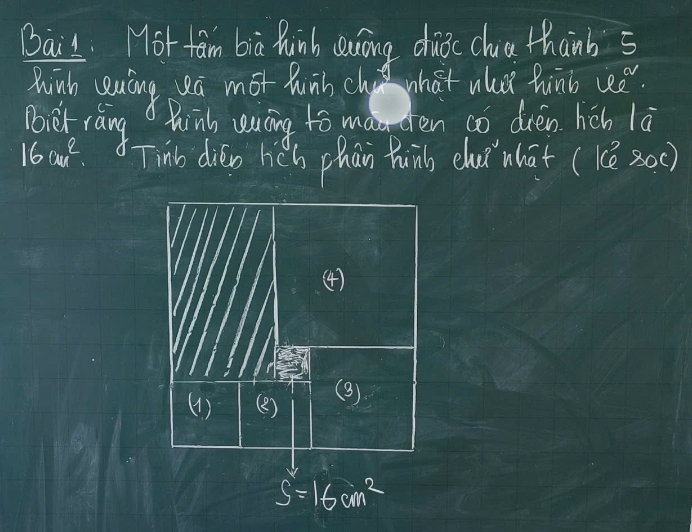 Bài 1. Một tấm bìa hình vuông được chia thành 5
hình vuông và một hình chữ nhật như hình vẽ.
Biết rằng hình vuông tô màu đen có diện tích là
16 cm². Tính diện tích phần hình chữ nhật (kẻ sọc)
(4)
(1) (2) (3)
S = 16 cm²